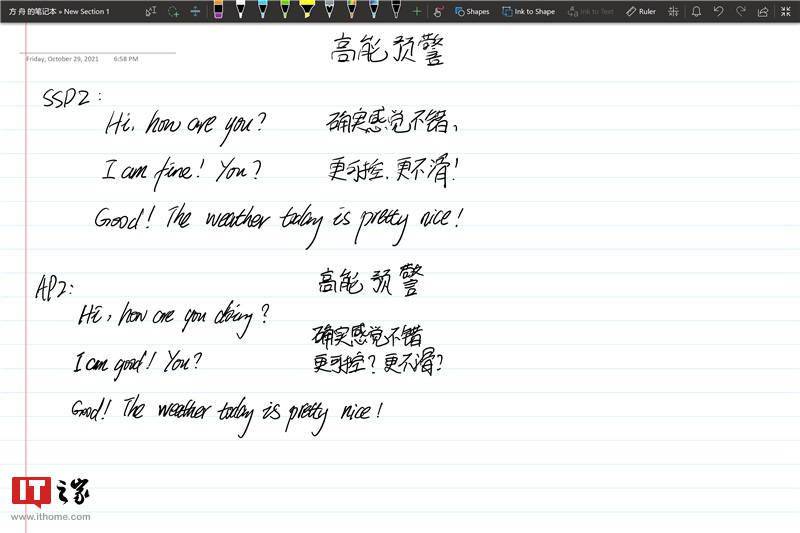 方 舟 的笔记本 » New Section 1
Shapes
Ink to Shape
Ink to Text
Ruler
高能预警
Friday, October 29, 2021 6:58 PM
SSP2:
Hi, how are you? 确实感觉不错,
I am fine! You? 更可控,更不滑!
Good! The weather today is pretty nice!
AP2: 高能预警
Hi, how are you doing?
确实感觉不错
I am good! You? 更可控?更不滑?
Good! The weather today is pretty nice!
IT之家
www.ithome.com